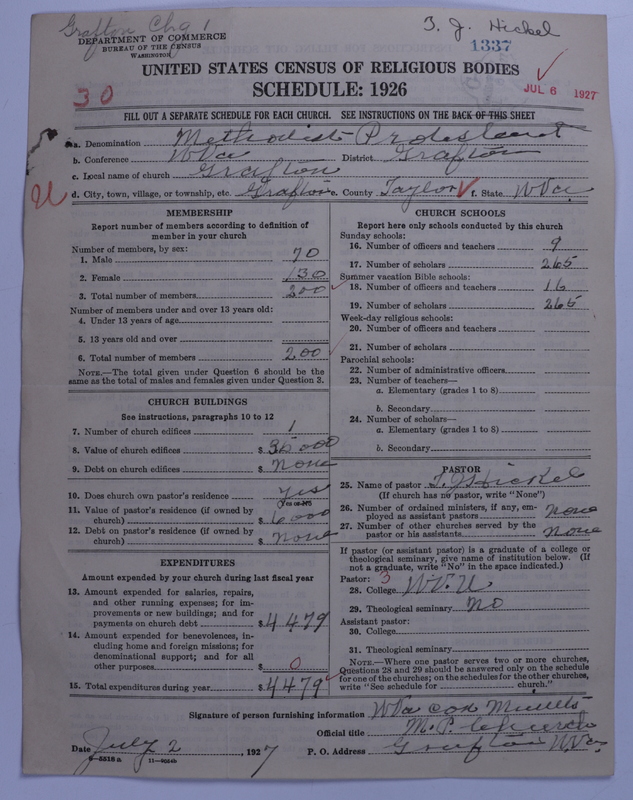 Grafton Chg 1
T. J. Hickel
DEPARTMENT OF COMMERCE
BUREAU OF THE CENSUS
WASHINGTON
1337
UNITED STATES CENSUS OF RELIGIOUS BODIES
SCHEDULE: 1926
30
JUL 6 1927
FILL OUT A SEPARATE SCHEDULE FOR EACH CHURCH. SEE INSTRUCTIONS ON THE BACK OF THIS SHEET
a. Denomination Methodist Protestant
b. Conference W Va District Grafton
c. Local name of church Grafton
d. City, town, village, or township, etc. Grafton e. County Taylor f. State W Va
MEMBERSHIP
Report number of members according to definition of
member in your church
Number of members, by sex:
1. Male 70
2. Female 130
3. Total number of members 200
Number of members under and over 13 years old:
4. Under 13 years of age
5. 13 years old and over
6. Total number of members 200
NOTE.—The total given under Question 6 should be the
same as the total of males and females given under Question 3.
CHURCH BUILDINGS
See instructions, paragraphs 10 to 12
7. Number of church edifices 1
8. Value of church edifices $ 35000
9. Debt on church edifices $ None
10. Does church own pastor's residence yes
Yes or No
11. Value of pastor's residence (if owned by
church) $ 6000
12. Debt on pastor's residence (if owned by
church) $ None
EXPENDITURES
Amount expended by your church during last fiscal year
13. Amount expended for salaries, repairs,
and other running expenses; for im-
provements or new buildings; and for
payments on church debt $ 4479
14. Amount expended for benevolences, in-
cluding home and foreign missions; for
denominational support; and for all
other purposes $ 0
15. Total expenditures during year $ 4479
CHURCH SCHOOLS
Report here only schools conducted by this church
Sunday schools:
16. Number of officers and teachers 9
17. Number of scholars 265
Summer vacation Bible schools:
18. Number of officers and teachers 16
19. Number of scholars 265
Week-day religious schools:
20. Number of officers and teachers
21. Number of scholars
Parochial schools:
22. Number of administrative officers
23. Number of teachers—
a. Elementary (grades 1 to 8)
b. Secondary
24. Number of scholars—
a. Elementary (grades 1 to 8)
b. Secondary
PASTOR
25. Name of pastor T. J. Hickel
(If church has no pastor, write "None")
26. Number of ordained ministers, if any, em-
ployed as assistant pastors None
27. Number of other churches served by the
pastor or his assistants None
If pastor (or assistant pastor) is a graduate of a college or
theological seminary, give name of institution below. (If
not a graduate, write "No" in the space indicated.)
Pastor: 3
28. College W.V.U
29. Theological seminary No
Assistant pastor:
30. College
31. Theological seminary
NOTE.—Where one pastor serves two or more churches,
Questions 28 and 29 should be answered only on the schedule
for one of the churches; on the schedules for the other churches,
write "See schedule for church."
Signature of person furnishing information W Va con Minutes
Official title M. P. Church
Date July 2, 1927 P. O. Address Grafton W Va